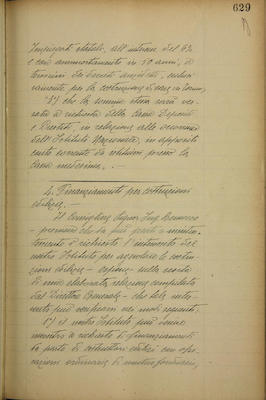 629
Impiegati statali, all'interesse del 6%
e con ammortamento in 50 anni, a
termini dei decreti anzidetti, esclusi-
vamente, per la costruzione di case in Roma;
3°) che la somma stessa sarà ver-
sata a richiesta della Cassa Depositi
e Prestiti, in relazione alle occorrenze
dell'Istituto Nazionale, in apposito
conto corrente da istituirsi presso la
Cassa medesima. -
4. Finanziamenti per costruzioni
edilizie. -
Il Consigliere Signor Ing.
- premesso che da più parti
richiesto l'intervento del
nostro Istituto per agevolare le costru-
zioni edilizie - espone, nella scorta
di una elaborata relazione compilata
dal Direttore Generale - che tale inter-
vento può verificarsi nei modi seguenti:
1°) il nostro Istituto può
a richieste di finanziamenti
da parte di costruttori edilizi con ope-
razioni ordinarie di mutuo fondiario,